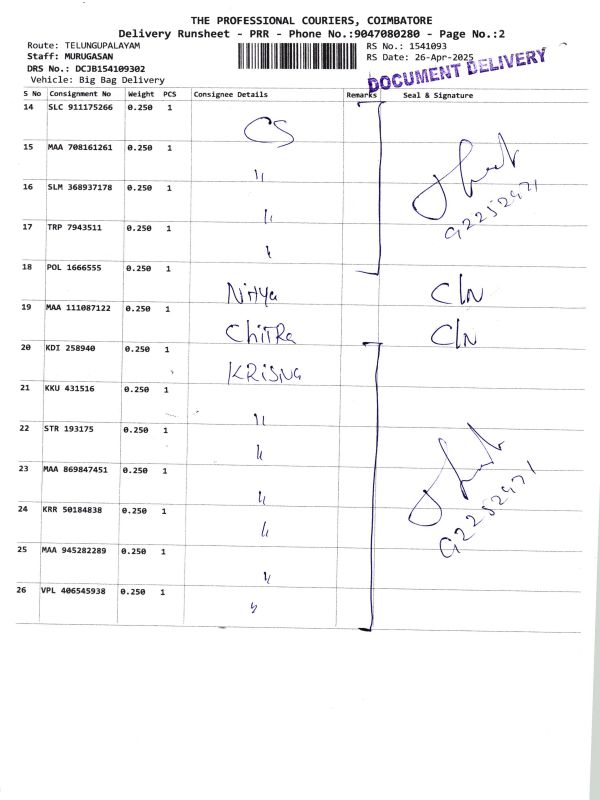 THE PROFESSIONAL COURIERS, COIMBATORE
Delivery Runsheet - PRR - Phone No.:9047080280 - Page No.:2
Route: TELUNGUPALAYAM RS No.: 1541093
Staff: MURUGASAN RS Date: 26-Apr-2025
DRS No.: DCJB154109302
Vehicle: Big Bag Delivery
DOCUMENT DELIVERY
S No Consignment No Weight PCS Consignee Details Remarks Seal & Signature
14 SLC 911175266 0.250 1 CS
15 MAA 708161261 0.250 1 "
16 SLM 368937178 0.250 1 "
17 TRP 7943511 0.250 1 "
18 POL 1666555 0.250 1 Nitya CLN
19 MAA 111087122 0.250 1 ChiTRa CLN
20 KDI 258940 0.250 1 KRISNa
21 KKU 431516 0.250 1 "
22 STR 193175 0.250 1 "
23 MAA 869847451 0.250 1 "
24 KRR 50184838 0.250 1 "
25 MAA 945282289 0.250 1 "
26 VPL 406545938 0.250 1 "